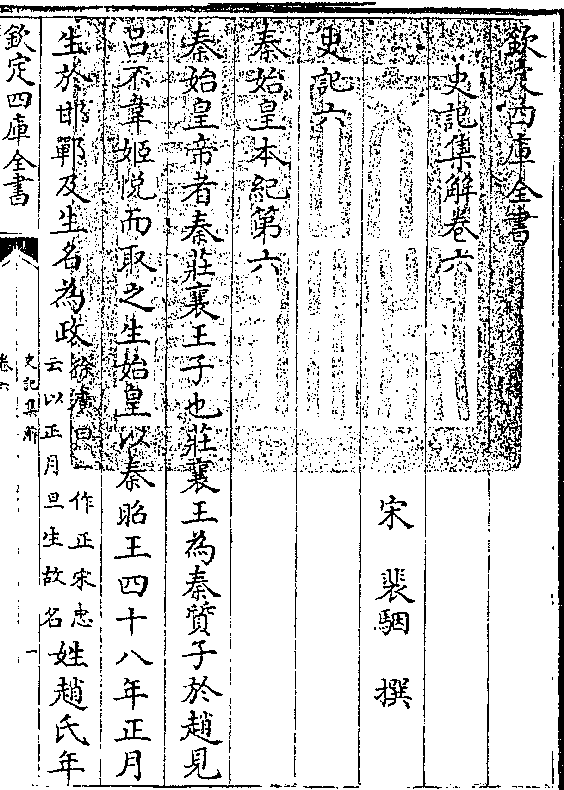 欽定四庫全書
史記集解卷六
宋 裴駰 撰
史記六
秦始皇本紀第六
秦始皇帝者秦莊襄王子也莊襄王為秦質子於趙見
呂不韋姬悅而取之生始皇以秦昭王四十八年正月
生於邯鄲及生名為政
徐廣曰一作正宋忠
云以正月旦生故名
姓趙氏年
欽定四庫全書
史記集解
卷六
一